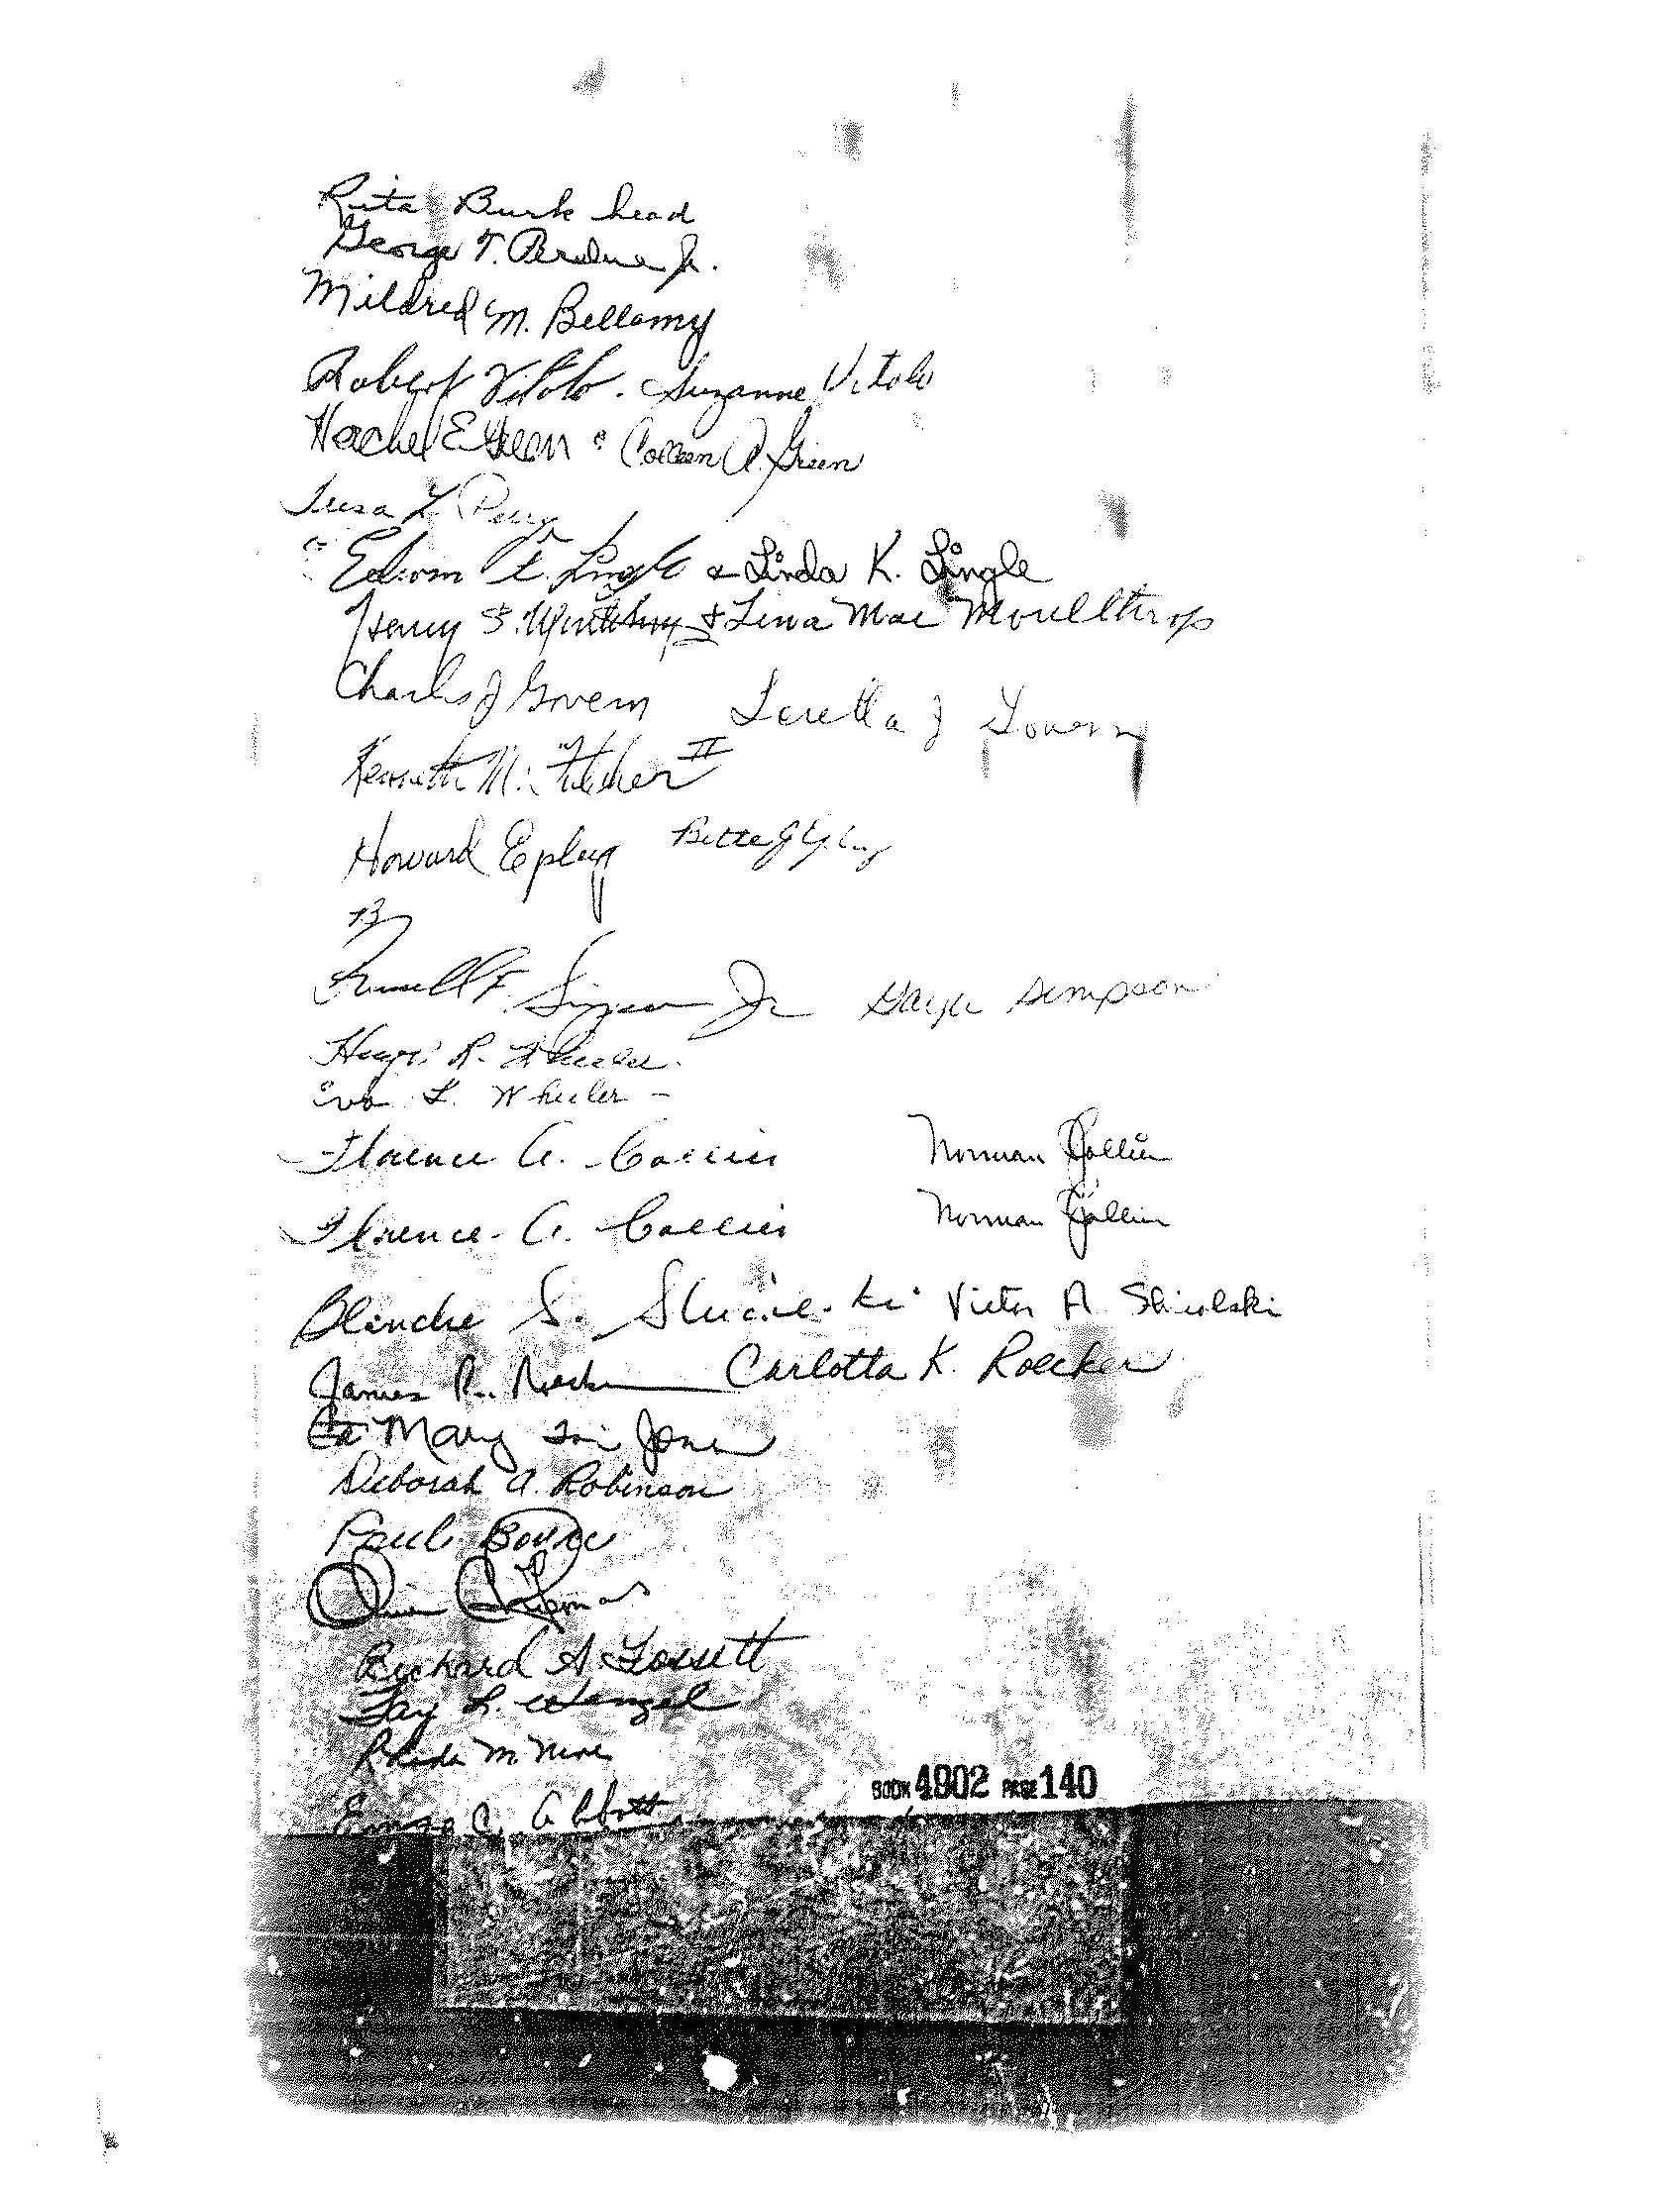 Rita Burkhead
George T. Perdue Jr.
Mildred M. Bellamy
Robert Vitolo . Suzanne Vitolo
Herchel E Green & Colleen A. Green
L. Perry
Edwom E. Lingle & Linda K. Lingle
Henry S. & Lena Mae Moulthrop
Charles J Govern Loretta J Govern
Kenneth M. Fletcher II
Howard Epling Bette J Epling
F. Simpson Jr Gaye Simpson
R. Wheeler
L. Wheeler -
Florence A. Collier Norman Collier
Florence A. Collier Norman Collier
Blanche S. Victor A
James R. Roecker Carlotta K. Roecker
Mary Lou Jones
Deborah A. Robinson
Paul
Richard A. Fossett
Fay L. Wenzel
Rhoda M.
C. Abbott
BOOK 4902 PAGE 140